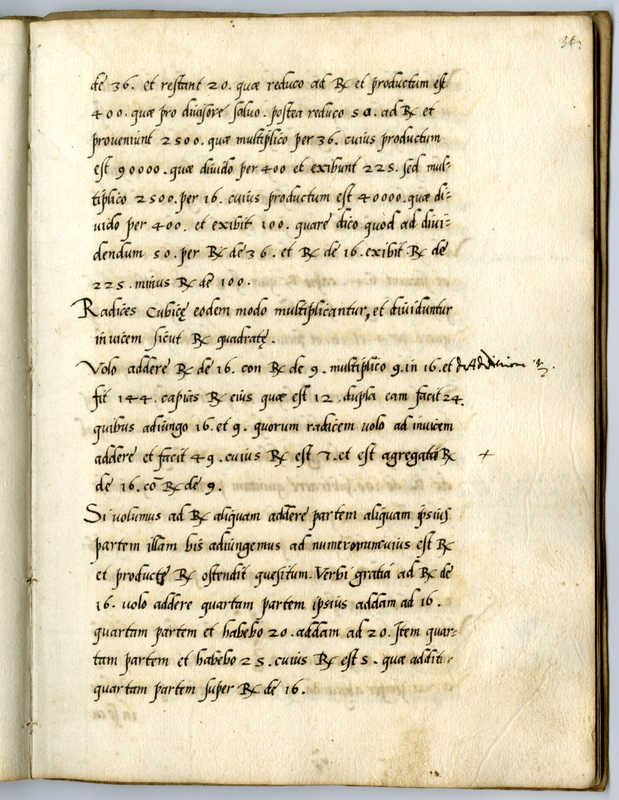 36.
de 36. et restant 20. quæ reduco ad ℞ et productum est
400. quæ pro divisore salvo. postea reduco 50. ad ℞ et
proveniunt 2500. quæ multiplico per 36. cuius productum
est 90000. quæ divido per 400 et exibunt 225. sed mul-
tiplico 2500. per 16. cuius productum est 40000. quæ di-
vido per 400. et exibit 100. quare dico quod ad divi-
dendum 50. per ℞ de 36. et ℞ de 16. exibit ℞ de
225. minus ℞ de 100.
Radices cubicę eodem modo multiplicantur, et dividuntur
invicem sicut ℞ quadratę.
Volo addere ℞ de 16. con ℞ de 9. multiplico 9. in 16. et
fit 144. capias ℞ eius quæ est 12. dupla eam facit 24.
quibus adiungo 16. et 9. quorum radicem volo ad invicem
addere et facit 49. cuius ℞ est 7. et est agregatũ ℞ +
de 16. cõ ℞ de 9.
Si volumus ad ℞ aliquam addere partem aliquam ipsius
partem illam bis adiungemus ad numerum cuius est ℞
et productę ℞ ostendit quesitum. Verbi gratia ad ℞ de
16. volo addere quartam partem ipsius addam ad 16.
quartam partem et habebo 20. addam ad 20. Item quar-
tam partem et habebo 25. cuius ℞ est 5. quæ additur
quartam partem super ℞ de 16.